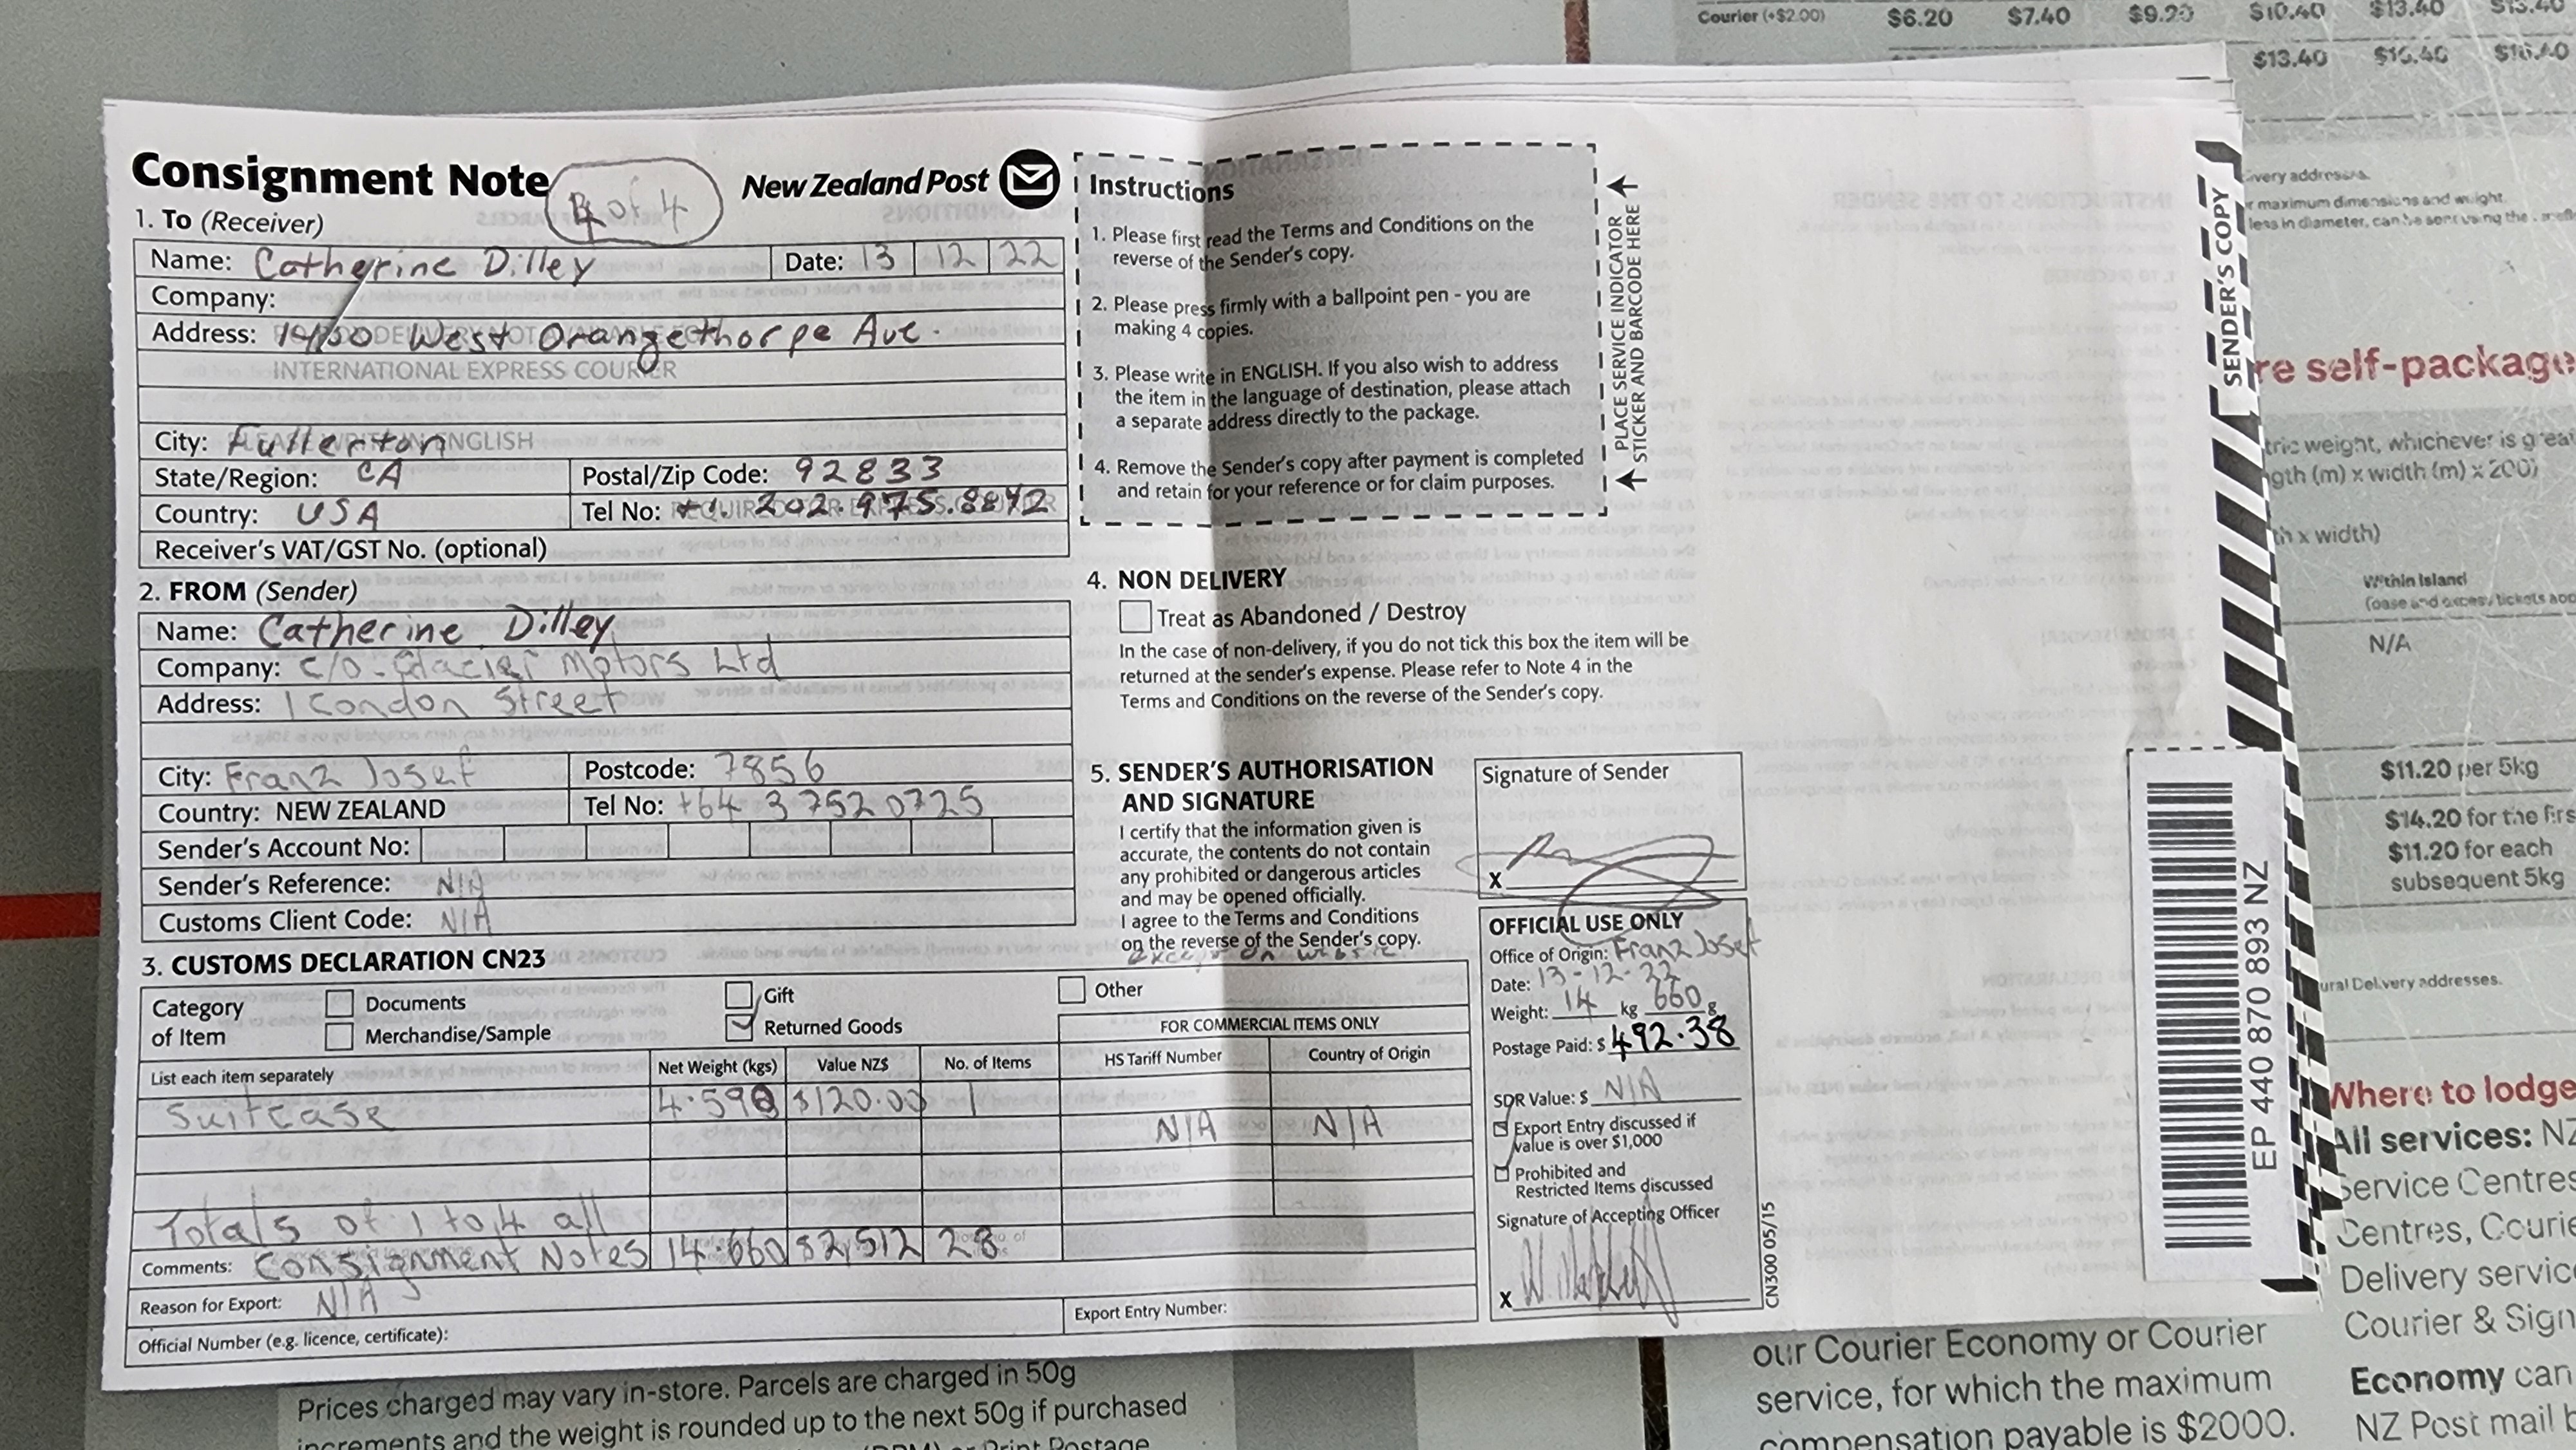 Courier (+$2.00) $6.20 $7.40 $9.20 $10.40 $13.40 $15.40
$13.40 $16.40 $18.40
Consignment Note
4 of 4
New Zealand Post
1. To (Receiver)
Name: Catherine Dilley Date: 13 12 22
Company:
Address: West Orangethorpe Ave.
INTERNATIONAL EXPRESS COURIER
City: Fullerton
State/Region: CA Postal/Zip Code: 92833
Country: USA Tel No: +1.202.975.8842
Receiver's VAT/GST No. (optional)
2. FROM (Sender)
Name: Catherine Dilley
Company: c/o - Glacier Motors Ltd
Address: 1 Condon Street
City: Franz Josef Postcode: 7856
Country: NEW ZEALAND Tel No: +64 3 7520725
Sender's Account No:
Sender's Reference: N/A
Customs Client Code: N/A
3. CUSTOMS DECLARATION CN23
Category of Item
Documents
Merchandise/Sample
Gift
Returned Goods
Other
FOR COMMERCIAL ITEMS ONLY
List each item separately Net Weight (kgs) Value NZ$ No. of Items HS Tariff Number Country of Origin
Suitcase 4.590 $120.00 1
N/A N/A
Totals of 1 to 4 all
Comments: Consignment Notes 14.660 $2,512 28
Reason for Export: N/A
Export Entry Number:
Official Number (e.g. licence, certificate):
Instructions
1. Please first read the Terms and Conditions on the
reverse of the Sender's copy.
2. Please press firmly with a ballpoint pen - you are
making 4 copies.
3. Please write in ENGLISH. If you also wish to address
the item in the language of destination, please attach
a separate address directly to the package.
4. Remove the Sender's copy after payment is completed
and retain for your reference or for claim purposes.
PLACE SERVICE INDICATOR
STICKER AND BARCODE HERE
4. NON DELIVERY
Treat as Abandoned / Destroy
In the case of non-delivery, if you do not tick this box the item will be
returned at the sender's expense. Please refer to Note 4 in the
Terms and Conditions on the reverse of the Sender's copy.
5. SENDER'S AUTHORISATION
AND SIGNATURE
I certify that the information given is
accurate, the contents do not contain
any prohibited or dangerous articles
and may be opened officially.
I agree to the Terms and Conditions
on the reverse of the Sender's copy.
Signature of Sender
X
OFFICIAL USE ONLY
Office of Origin: Franz Josef
Date: 13-12-22
Weight: 14 kg 660 g
Postage Paid: $ 492.38
SDR Value: $ N/A
Export Entry discussed if
value is over $1,000
Prohibited and
Restricted Items discussed
Signature of Accepting Officer
X
CN300 05/15
SENDER'S COPY
EP 440 870 893 NZ
very addresses.
r maximum dimensions and weight.
less in diameter, can be sent using the
re self-package
tric weight, whichever is grea
gth (m) x width (m) x 200)
th x width)
Within Island
(base and excess tickets
N/A
$11.20 per 5kg
$14.20 for the firs
$11.20 for each
subsequent 5kg
ural Delivery addresses.
Where to lodge
All services: NZ
Service Centres
Centres, Courie
Delivery service
Courier & Sign
Economy can
NZ Post mail b
our Courier Economy or Courier
service, for which the maximum
compensation payable is $2000.
Prices charged may vary in-store. Parcels are charged in 50g
increments and the weight is rounded up to the next 50g if purchased
Print Postage